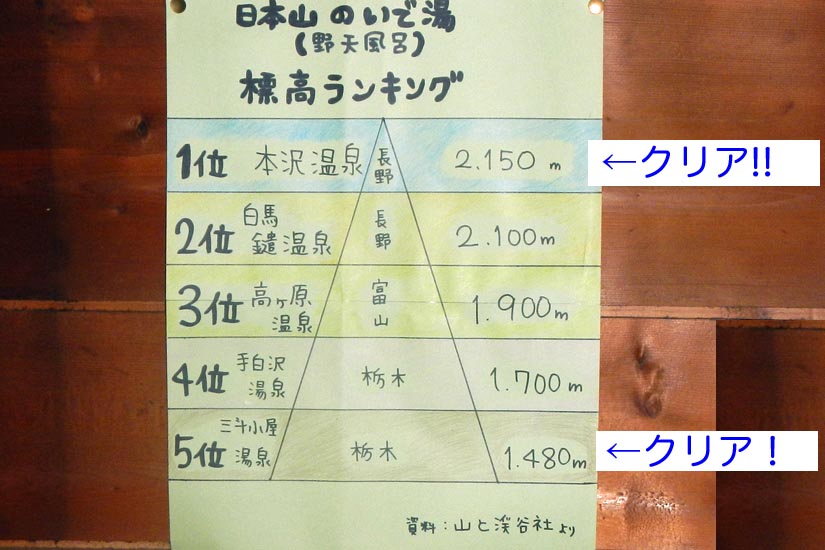 日本山のいで湯
(野天風呂)
標高ランキング
1位 本沢温泉 長野 2.150m ←クリア!!
2位 白馬鑓温泉 長野 2.100m
3位 高ヶ原温泉 富山 1.900m
4位 手白沢湯泉 栃木 1.700m
5位 三斗小屋湯泉 栃木 1.480m ←クリア！
資料：山と渓谷社より